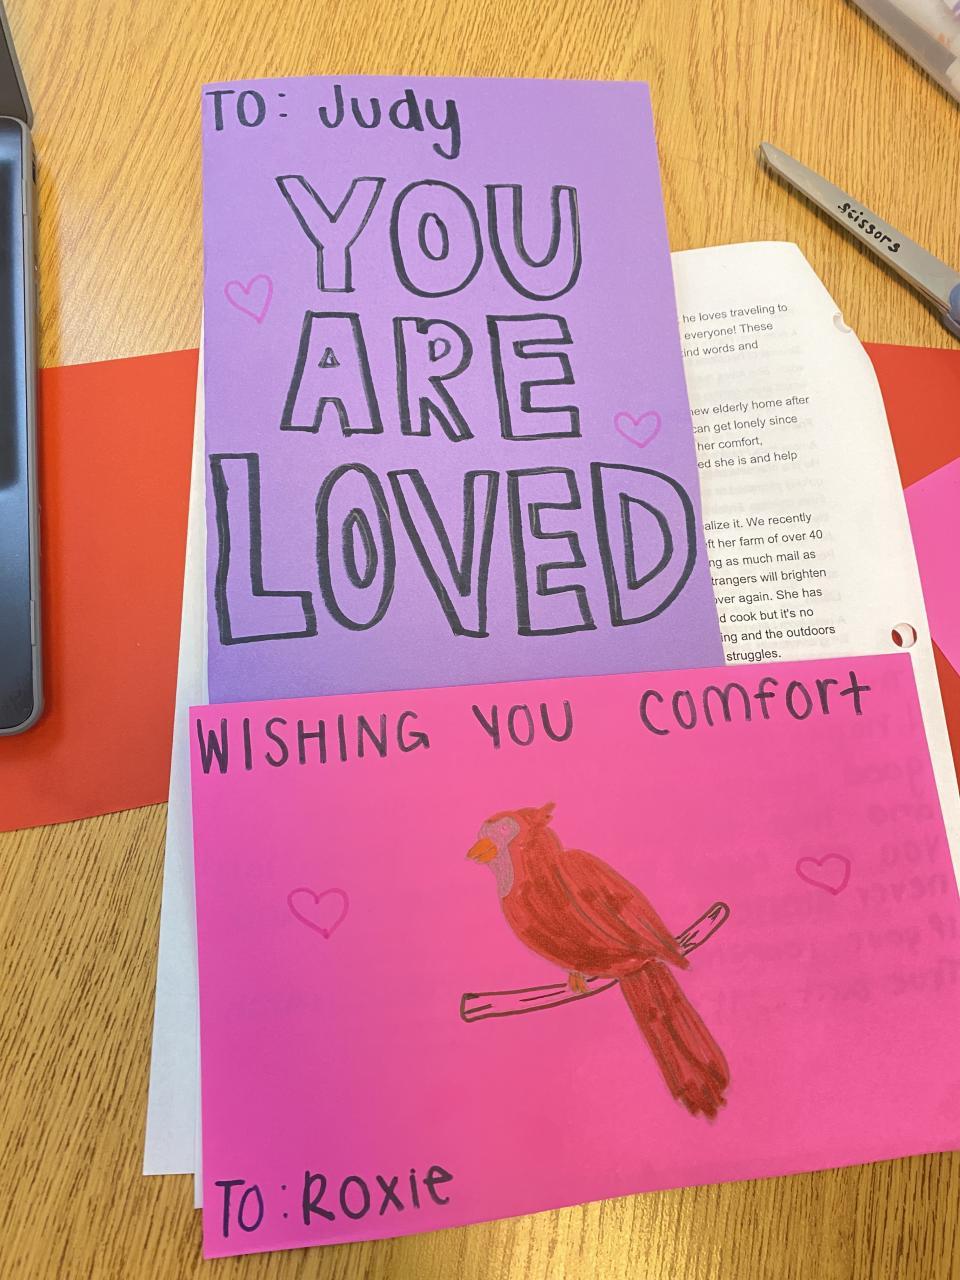 TO: Judy
YOU
ARE
LOVED
scissors
he loves traveling to
everyone! These
ind words and
new elderly home after
can get lonely since
her comfort,
ed she is and help
alize it. We recently
eft her farm of over 40
ng as much mail as
trangers will brighten
over again. She has
d cook but it's no
ing and the outdoors
struggles.
WISHING YOU comfort
TO: Roxie